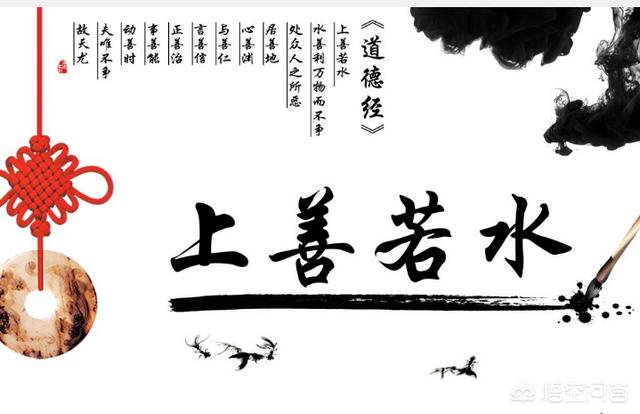 《道德经》
上善若水
水善利万物而不争
处众人之所恶
居善地
心善渊
与善仁
言善信
正善治
事善能
动善时
夫唯不争
故天尤
上善若水
悟空问答